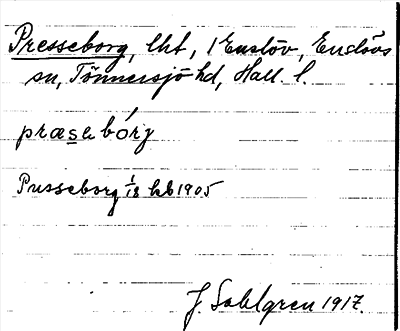 Presseborg, lht, 1 Enslöv, Enslövs
sn, Tönnersjö hd, Hall. l.
præsabórg
Pusseborg 1/18 hb 1905
J. Sahlgren 1917.